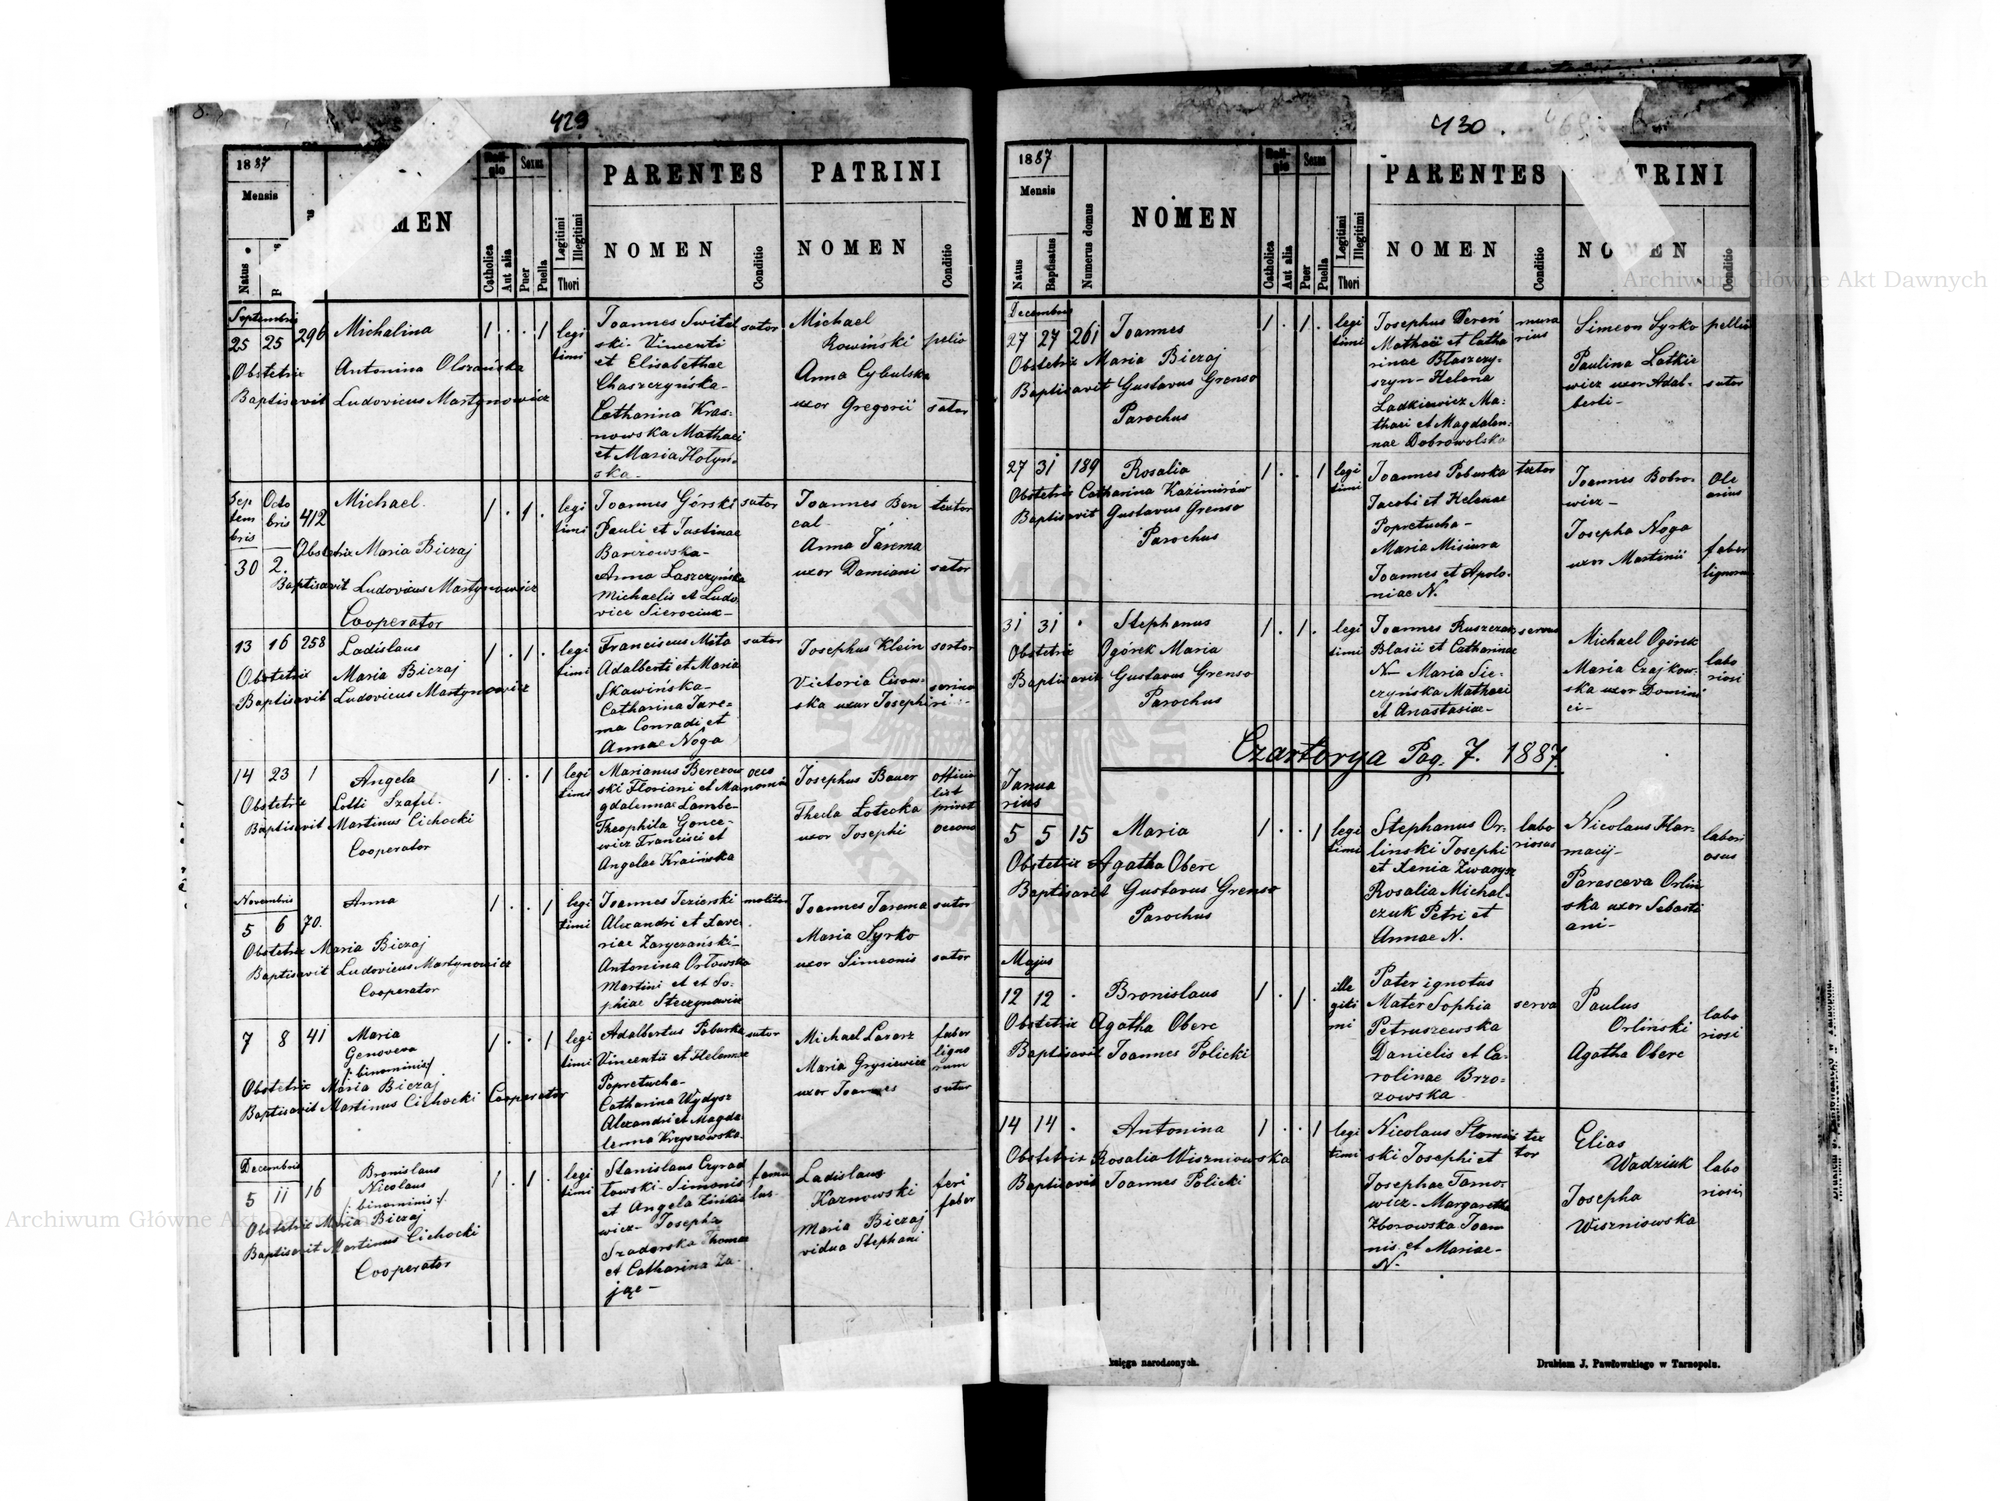 429
1887
Mensis
Natus
NOMEN
Religio
Catholica
Aut alia
Sexus
Puer
Puella
Legitimi
Illegitimi
Thori
PARENTES
NOMEN
Conditio
PATRINI
NOMEN
Conditio
Septembris
25 25 296 Michalina 1 . . 1 legi
timi
Obstetrix Antonina Olszańska
Baptisavit Ludovicus Martynowicz
Joannes Switul
ski. Vincenti
et Elisabethae
Chaszczyńska
Catharina Kras=
nowska Mathaei
et Maria Hołyń=
ska
sator
Michael
Rowiński
Anna Cybulska
uxor Gregorii
pelio
sator
Sep
tem
bris
30
Octo
bris
2.
412
Michael. 1 . 1 . legi
timi
Obstetrix Maria Biczaj
Baptisavit Ludovicus Martynowicz
Cooperator
Joannes Górski
Pauli et Justinae
Barezowska-
Anna Laszczyńska
Michaelis et Ludo
vice Sierociuk-
sator
Joannes Ben
cal
Anna Jarema
uxor Damiani
textor
sator
13 16 258 Ladislaus 1 . 1 . legi
timi
Obstetrix Maria Biczaj
Baptisavit Ludovicus Martynowicz
Franciscus Mita
Adalberti et Maria
Skawińska-
Catharina Jare=
ma Conradi et
Annae Noga
sutor
Josephus Klein
Victoria Cisow=
ska uxor Josephi
sortor
14 23 1 Angela 1 . . 1 legi
timi
Obstetrix Lotti Szafel.
Baptisavit Martinus Cichocki
Cooperator
Marianus Berezow
ski Floriani et Ma
gdalennae Lambe-
Theophila Gonce-
wicz Francisci et
Angelae Kraińska
oeco
nomus
Josephus Bauer
Thecla Łotecka
uxor Josephi
official
list
privat
oecono
Novembris
5 6 70. Anna 1 . . 1 legi
timi
Obstetrix Maria Biczaj
Baptisavit Ludovicus Martynowicz
Cooperator
Joannes Jezierski
Alexandri et Xave
riae Zaryczański-
Antonina Orłowska
Martini et et So=
phiae Steczynowicz
molitor
Joannes Jarema
Maria Syrko
uxor Simeonis
sutor
sator
7 8 41 Maria
Genovefa
/: binominis:/
1 . . 1 legi
timi
Obstetrix Maria Biczaj
Baptisavit Martinus Cichocki Cooperator
Adalbertus Poburka
Vincentii et Helennae
Popretucha-
Catharina Wydysz
Alexandri et Magda
lenna Krzyszowska
sutor
Michael Lasarz
Maria Grysiewicz
uxor Joannes
faber
ligno
rum
sutor
Decembris
5 11 16 Bronislaus
Nicolaus
/: binominis:/
1 . 1 . legi
timi
Obstetrix Maria Biczaj
Baptisavit Martinus Cichocki
Cooperator
Stanislaus Czyrad
towski Simonis
et Angela Zinkie
wicz- Josepha
Szadorska Thomae
et Catharina Za=
jąc-
famu
lus-
Ladislaus
Kaznowski
Maria Biczaj
vidua Stephani
feri
faber
430.
1887
Mensis
Natus
Baptisatus
Numerus domus
NOMEN
Religio
Catholica
Aut alia
Sexus
Puer
Puella
Legitimi
Illegitimi
Thori
PARENTES
NOMEN
Conditio
PATRINI
NOMEN
Conditio
Decembris
27 27 261 Joannes 1 . 1 . legi
timi
Obstetrix Maria Biczaj
Baptisavit Gustavus Grenso
Parochus
Josephus Dereń
Mathaei et Catha
rinae Błaszczy=
szyn- Helena
Ladkiewicz Ma=
thaei et Magdalen=
nae Dobrowolska
mura
rius
Simeon Syrko
Paulina Latkie
wicz uxor Adal=
berti-
pellio
sator
27 31 189 Rosalia 1 . . 1 legi
timi
Obstetrix Catharina Kazimirów
Baptisavit Gustavus Grenso
Parochus
Joannes Poburka
Jacobi et Helenae
Popretucha-
Maria Misiura
Joannes et Apolo=
niae N.
textor
Joannes Bobro=
wicz-
Josepha Noga
uxor Martinii
Ole
arius
faber
lignoru
31 31 . Stephanus 1 . 1 . legi
timi
Obstetrix Ogórek Maria
Baptisavit Gustavus Grenso
Parochus
Joannes Ruszczak
Blasii et Catharinae
N- Maria Sie=
czyńska Mathaei
et Anastasiae-
servus
Michael Ogórek
Maria Czajkow=
ska uxor Domini
ci-
labo
riosi
Czartorya Pag. 7. 1887.
Janua
rius
5 5 15 Maria 1 . . 1 legi
timi
Obstetrix Agatha Obere
Baptisavit Gustavus Grenso
Parochus
Stephanus Or=
linski Josephi
et Xenia Zwarysz
Rosalia Michal=
czuk Petri et
Annae N.
labo
riosus
Nicolaus Har=
macij-
Parasceva Orlin
ska uxor Sebasti
ani-
labori
osus
Majus
12 12 . Bronislaus 1 . 1 . ille
giti
mi
Obstetrix Agatha Obere
Baptisavit Joannes Policki
Pater ignotus
Mater Sophia
Petruszewska
Danielis et Ca=
rolinae Brzo=
zowska
serva
Paulus
Orliński
Agatha Obere
labo
riosi
14 14 . Antonina 1 . . 1 legi
timi
Obstetrix Rosalia Wiszniowska
Baptisavit Joannes Policki
Nicolaus Słomiń
ski Josephi et
Josephae Tarno=
wicz- Margaretha
Zborowska Joan
nis et Mariae-
N-
tex
tor
Elias
Wadziuk
Josepha
Wiszniowska
labo
riosi
księga narodzonych.
Drukiem J. Pawłowskiego w Tarnopolu.
Archiwum Główne Akt Dawnych
Archiwum Główne Akt Dawnych